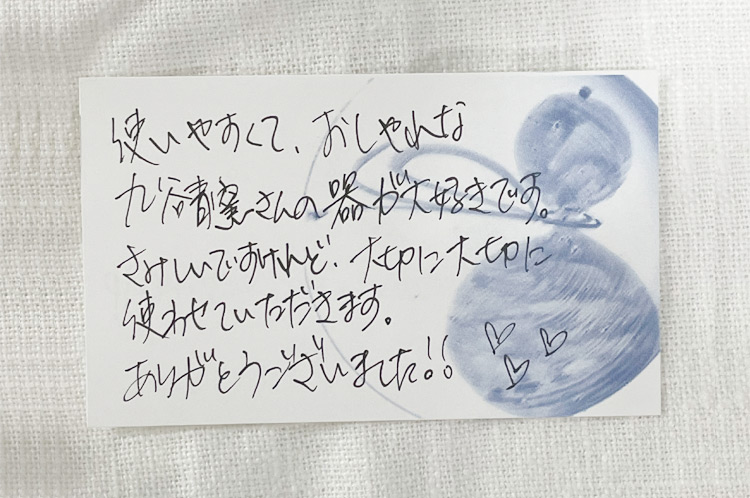 使いやすくて、おしゃれな
九谷青窯さんの器が大好きです。
さみしいですけれど、大切に大切に
使わせていただきます。
ありがとうございました!!